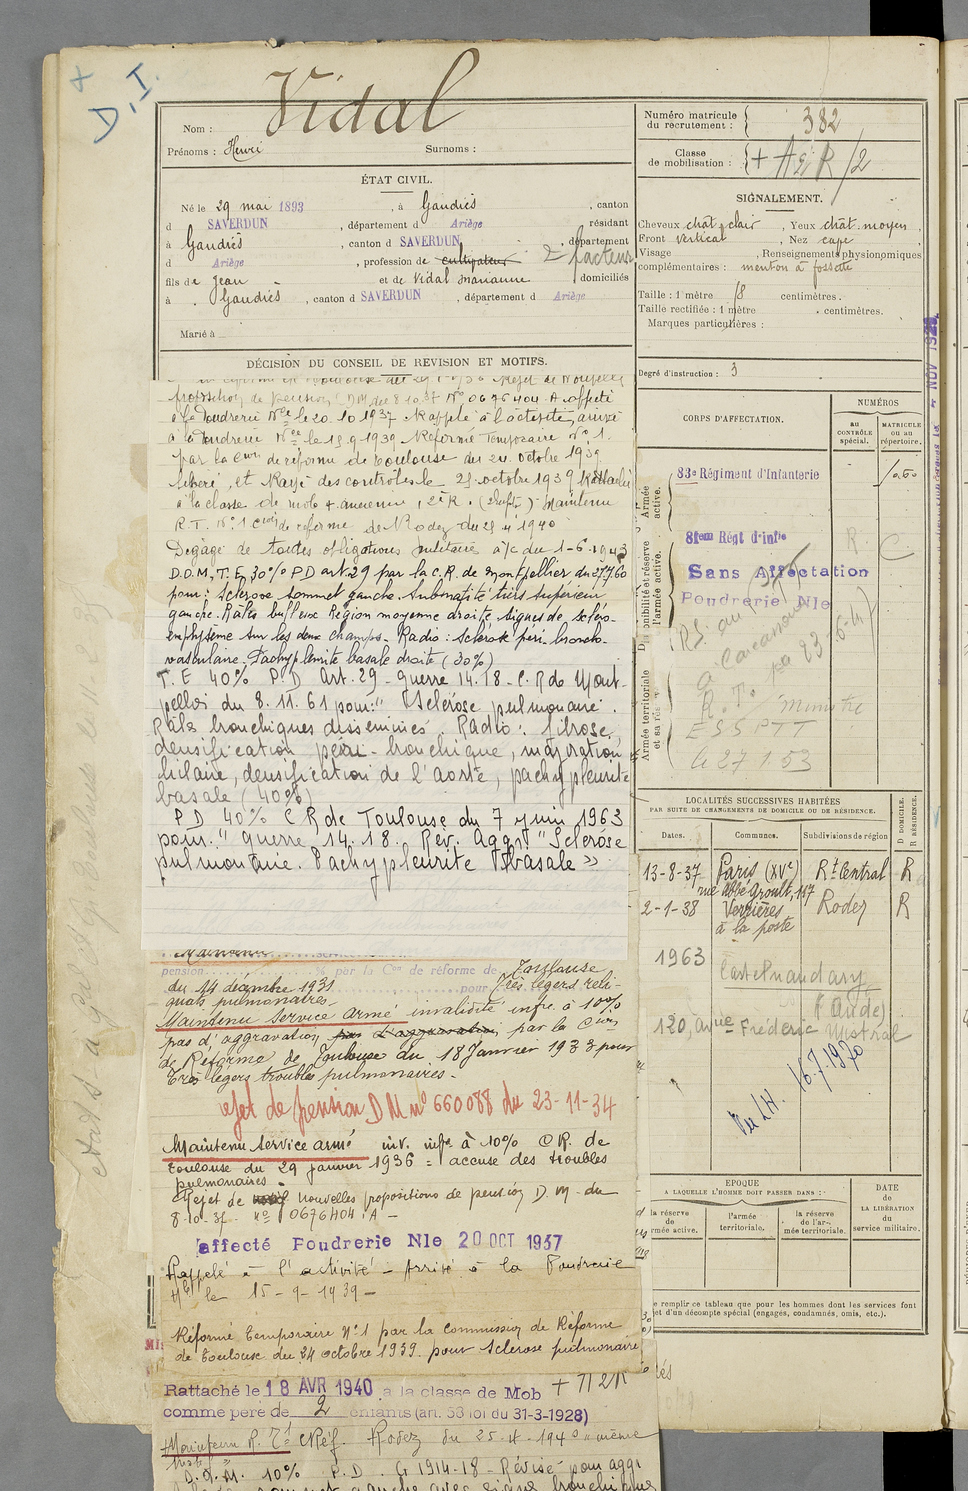 + D.I.
Vidal
Nom :
Prénoms : Henri Surnoms :
ÉTAT CIVIL.
Né le 29 mai 1893, à Gaudiés, canton
d SAVERDUN, département d Ariège résidant
à Gaudiés, canton d SAVERDUN, département
d Ariège, profession de cultivateur 2 facteur
fils de Jean et de Vidal Marianne domiciliés
à Gaudiés, canton d SAVERDUN, département d Ariège
Marié à
DÉCISION DU CONSEIL DE REVISION ET MOTIFS.
proposition de pension DM du 8.10.37 N° 0676404 A affecté
à la Poudrerie Nle le 20.10.1937 Rappelé à l'activité, arrivé
à la Poudrerie Nle le 15.9.1939 Réformé Temporaire N° 1.
par la Con de réforme de Toulouse du 24 octobre 1939
libéré, et Rayé des contrôles le 25 octobre 1939 Rattaché
à la classe de mob + ancienne, 2è R. Maintenu
R.T. N° 1 Con de réforme de Rodez du 25 4 1940
Dégagé de toutes obligations militaires a/c du 1-6-1943
D.O.M. T.E. 30% P.D art. 29 par la C.R. de Montpellier du 27.7.60
pour : Sclérose sommet gauche. Submatité tiers supérieur
gauche. Râles bulleux Région moyenne droite, signes de scléro-
emphysème sur les deux champs. Radio : sclérose péri-broncho-
vasculaire. Pachypleurite basale droite (30%)
T.E 40% P.D Art. 29 - guerre 14.18 - C.R de Mont-
pellier du 8.11.61 pour : "Sclérose pulmonaire.
Râles bronchiques disséminés. Radio : fibrose,
densification péri-bronchique, majoration
hilaire, densification de l'aorte, pachypleurite
basale (40%)
P D 40% C R de Toulouse du 7 juin 1963
pour : " guerre 14.18. Rév. Aggr. "Sclérose
pulmonaire. Pachypleurite basale »
pension % par la Con de réforme de Toulouse
du 14 décembre 1931 pour Très légers reli-
quats pulmonaires.
Maintenu Service armé invalidité infre à 10%
pas d'aggravation par la Con
de Réforme de Toulouse du 18 Janvier 1933 pour
Très légers troubles pulmonaires.
Rejet de pension DM n° 660088 du 23-11-34
Maintenu Service armé inv. infre à 10% CR. de
Toulouse du 29 janvier 1936 = accuse des troubles
pulmonaires.
Rejet de nouvelles propositions de pension D.M. du
8-10-37 n° 0676404.A -
affecté Poudrerie Nle 20 OCT 1937
Rappelé à l'activité - Arrivé à la Poudrerie
Nle le 15-9-1939 -
Réformé Temporaire N°1 par la Commission de Réforme
de Toulouse du 24 octobre 1939 pour Sclérose pulmonaire
Rattaché le 18 AVR 1940 à la classe de Mob
comme père de 2 enfants (art. 58 loi du 31-3-1928)
Maintenu R. T1 CRéf. Rodez du 25-4-1940 "même
D.O.M. 10% P.D. G 1914-18 - Révisé pour aggr
Numéro matricule du recrutement : 382
Classe de mobilisation :
SIGNALEMENT.
Cheveux chât clair, Yeux chât. moyen
Front vertical, Nez cave
Visage, Renseignements physionomiques
complémentaires : menton à fossette
Taille : 1 mètre 78 centimètres.
Taille rectifiée : 1 mètre centimètres.
Marques particulières :
Degré d'instruction : 3
CORPS D'AFFECTATION.
NUMÉROS
AU CONTRÔLE spécial.
MATRICULE OU AU répertoire.
Armée active.
83e Régiment d'Infanterie
Disponibilité et réserve de l'armée active.
81em Régt d'infie
R. C.
Sans Affectation
Poudrerie Nle
Armée territoriale et sa réserve
ministre
E S S P T T
le 27.1.53
LOCALITÉS SUCCESSIVES HABITÉES
PAR SUITE DE CHANGEMENTS DE DOMICILE OU DE RÉSIDENCE.
Dates. Communes. Subdivisions de région
D DOMICILE. R RÉSIDENCE.
13-8-37 Paris (XVe) Rt Central R
rue Abbé Groult, 117
2-1-38 Verrières Rodez R
à la poste
1963 Castelnaudary
(Aude)
120, avenue Frédéric Mistral
Vu LH. 16.7.1970
EPOQUE
A LAQUELLE L'HOMME DOIT PASSER DANS :
DATE
de
LA LIBÉRATION
du
service militaire.
la réserve de l'armée active.
l'armée territoriale.
la réserve de l'armée territoriale.
e remplir ce tableau que pour les hommes dont les services font
jet d'un décompte spécial (engagés, condamnés, omis, etc.).